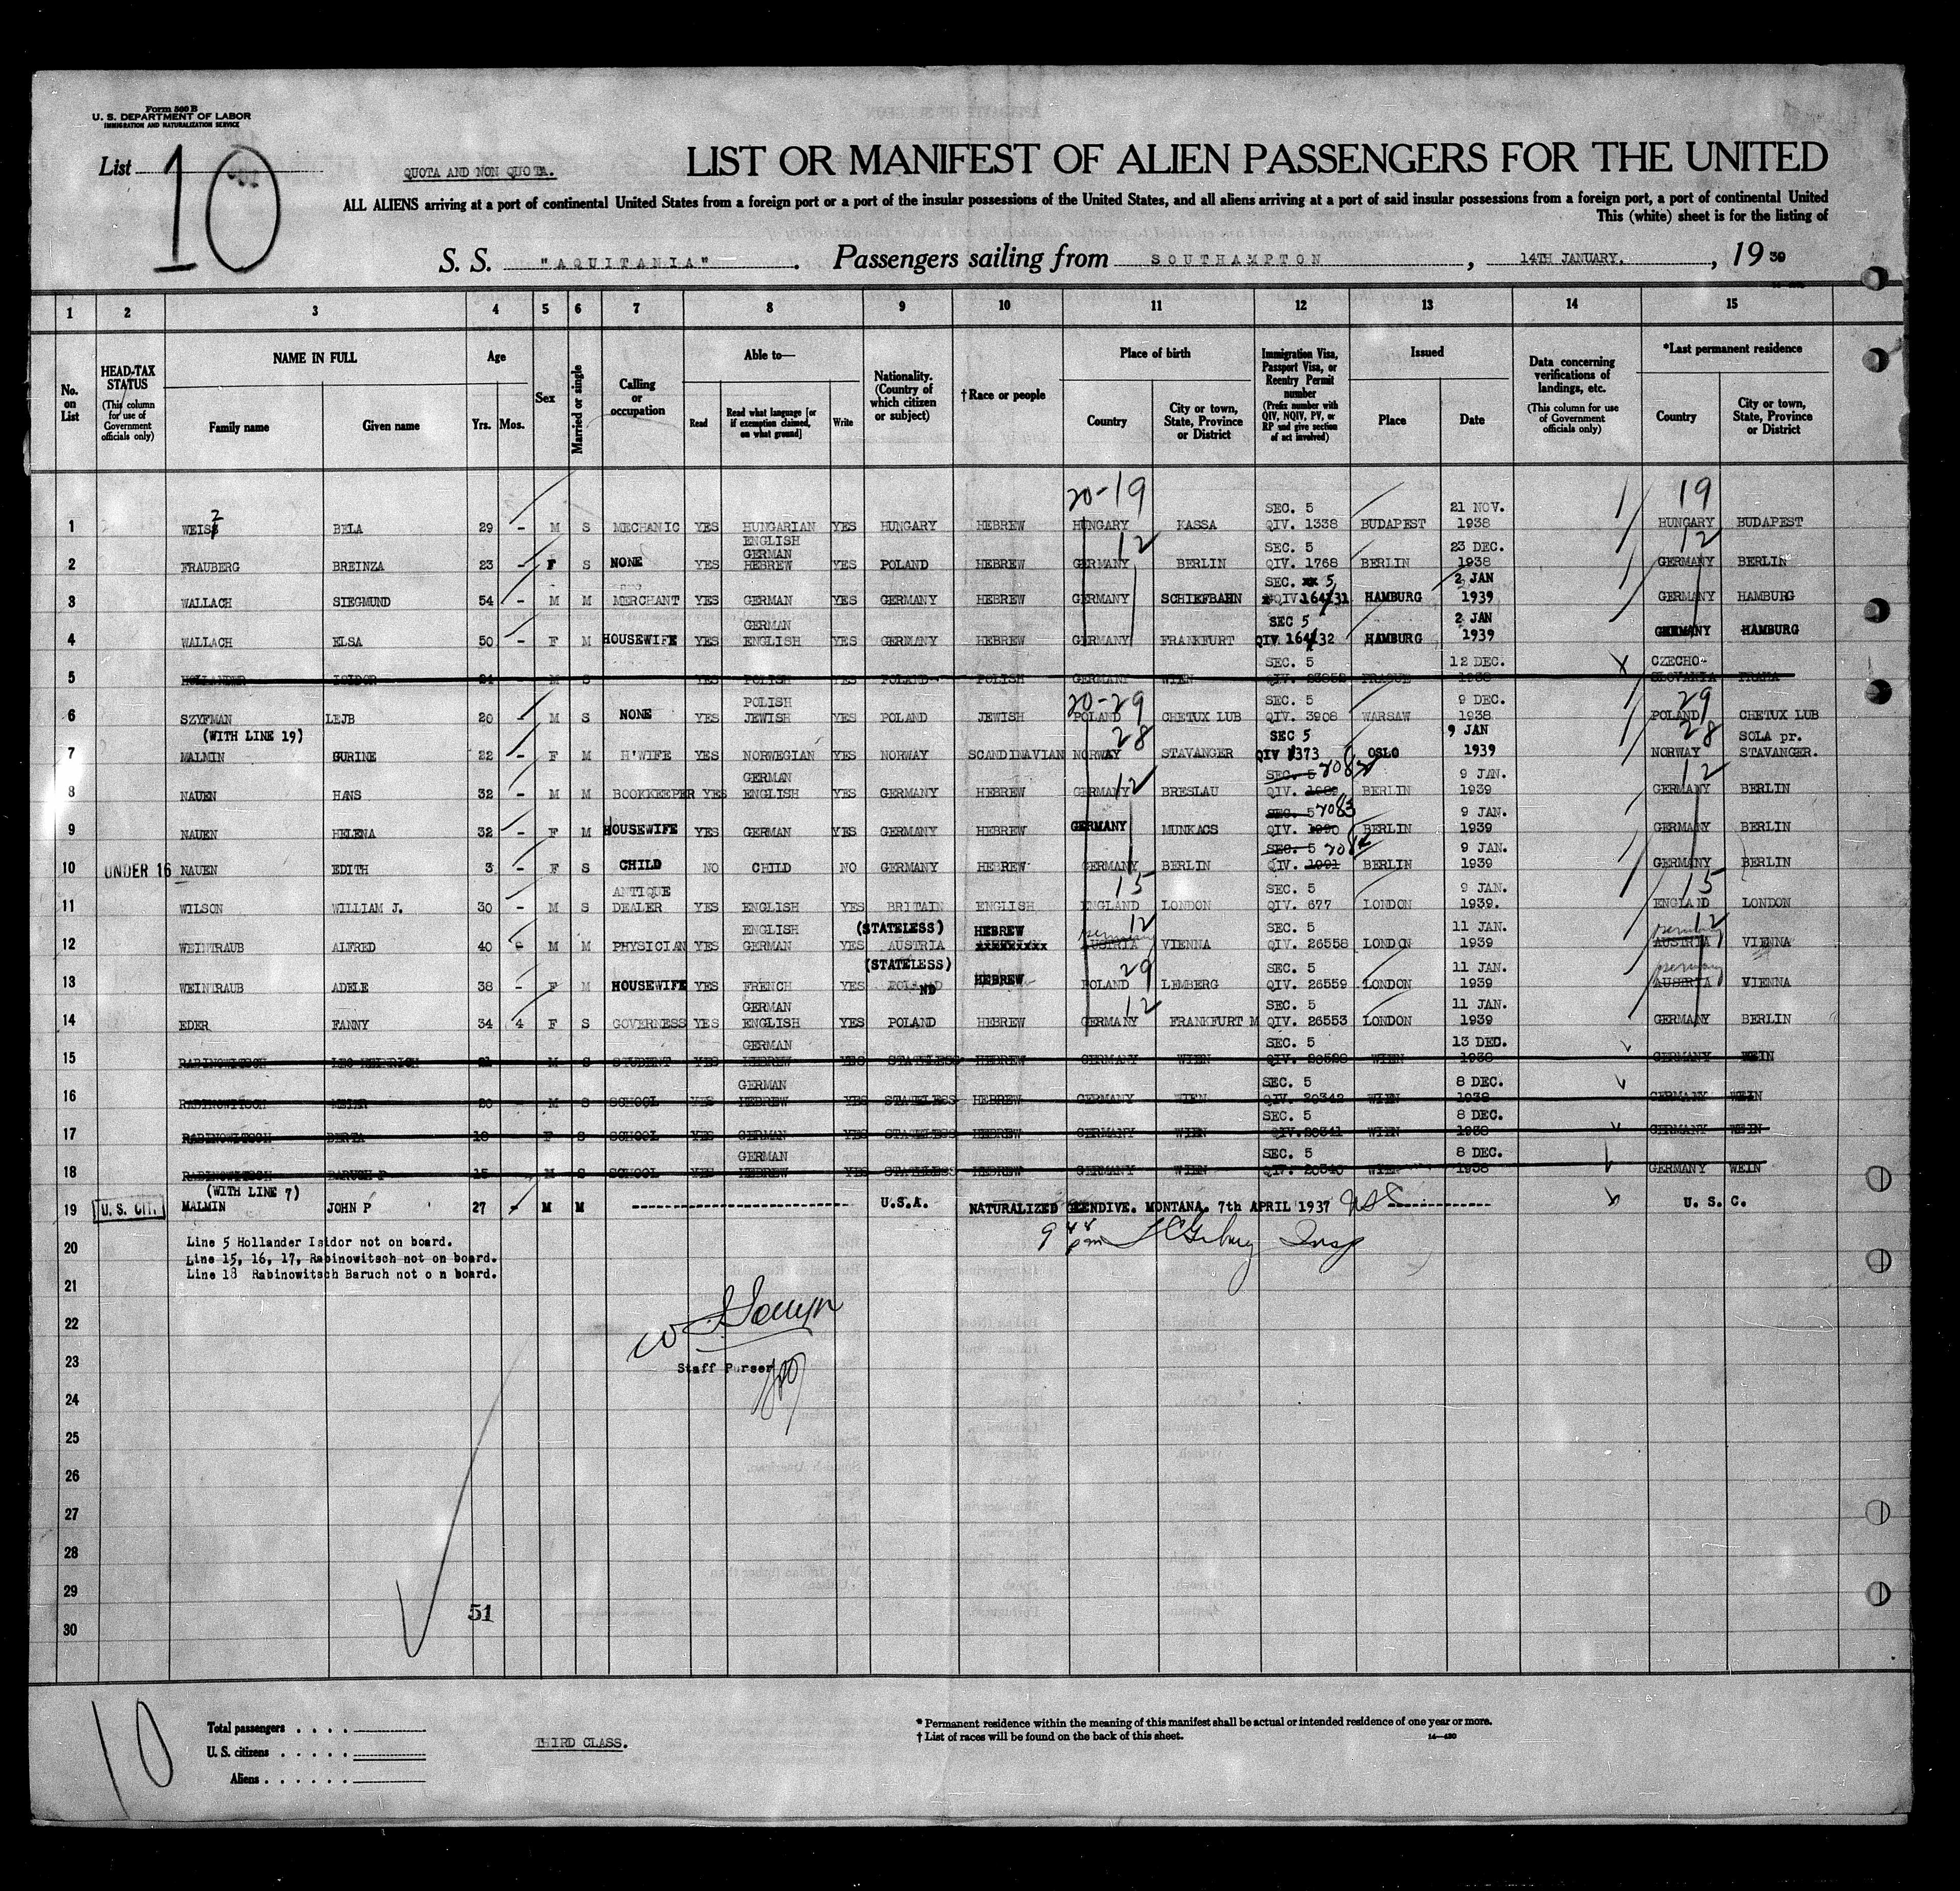 Form 500 B
U. S. DEPARTMENT OF LABOR
IMMIGRATION AND NATURALIZATION SERVICE
List 10
QUOTA AND NON QUOTA.
LIST OR MANIFEST OF ALIEN PASSENGERS FOR THE UNITED
ALL ALIENS arriving at a port of continental United States from a foreign port or a port of the insular possessions of the United States, and all aliens arriving at a port of said insular possessions from a foreign port, a port of continental United
This (white) sheet is for the listing of
S. S. "AQUITANIA". Passengers sailing from SOUTHAMPTON, 14TH JANUARY., 19 39
1 2 3 4 5 6 7 8 9 10 11 12 13 14 15
No. on List
HEAD-TAX STATUS (This column for use of Government officials only)
NAME IN FULL Family name Given name
Age Yrs. Mos.
Sex
Married or single
Calling or occupation
Able to— Read Read what language [or if exemption claimed, on what ground] Write
Nationality. (Country of which citizen or subject)
† Race or people
Place of birth Country City or town, State, Province or District
Immigration Visa, Passport Visa, or Reentry Permit number (Prefix number with QIV, NQIV, PV, or RP and give section of act involved)
Issued Place Date
Data concerning verifications of landings, etc. (This column for use of Government officials only)
*Last permanent residence Country City or town, State, Province or District
20-19 SEC. 5 21 NOV. 19
1 WEISZ BELA 29 - M S MECHANIC YES HUNGARIAN YES HUNGARY HEBREW HUNGARY KASSA QIV. 1338 BUDAPEST 1938 HUNGARY BUDAPEST
ENGLISH GERMAN 12 SEC. 5 23 DEC. 12
2 FRAUBERG BREINZA 23 - F S NONE YES HEBREW YES POLAND HEBREW GERMANY BERLIN QIV. 1768 BERLIN 1938 GERMANY BERLIN
SEC. 5 2 JAN
3 WALLACH SIEGMUND 54 - M M MERCHANT YES GERMAN YES GERMANY HEBREW GERMANY SCHIEFBAHN QIV 164/31 HAMBURG 1939 GERMANY HAMBURG
GERMAN SEC 5 2 JAN
4 WALLACH ELSA 50 - F M HOUSEWIFE YES ENGLISH YES GERMANY HEBREW GERMANY FRANKFURT QIV 164/32 HAMBURG 1939 GERMANY HAMBURG
SEC. 5 12 DEC. CZECHO-
5 HOLLANDER ISIDOR 21 M S YES POLISH YES POLAND POLISH GERMANY WIEN QIV. PRAGUE 1938 SLOVANIA PRAHA
POLISH 20-29 SEC. 5 9 DEC. 29
6 SZYFMAN LEJB 20 - M S NONE YES JEWISH YES POLAND JEWISH POLAND CHETUX LUB QIV. 3908 WARSAW 1938 POLAND CHETUX LUB
(WITH LINE 19) 28 SEC 5 9 JAN 28 SOLA pr.
7 MALMIN GURINE 22 - F M H'WIFE YES NORWEGIAN YES NORWAY SCANDINAVIAN NORWAY STAVANGER QIV 1373 OSLO 1939 NORWAY STAVANGER.
GERMAN 12 SEC. 5 9 JAN. 12
8 NAUEN HANS 32 - M M BOOKKEEPER YES ENGLISH YES GERMANY HEBREW GERMANY BRESLAU QIV. BERLIN 1939 GERMANY BERLIN
SEC. 5 7083 9 JAN.
9 NAUEN HELENA 32 - F M HOUSEWIFE YES GERMAN YES GERMANY HEBREW GERMANY MUNKACS QIV. 1990 BERLIN 1939 GERMANY BERLIN
SEC. 5 9 JAN.
10 UNDER 16 NAUEN EDITH 3 - F S CHILD NO CHILD NO GERMANY HEBREW GERMANY BERLIN QIV. 1991 BERLIN 1939 GERMANY BERLIN
ANTIQUE 15 SEC. 5 9 JAN. 15
11 WILSON WILLIAM J. 30 - M S DEALER YES ENGLISH YES BRITAIN ENGLISH ENGLAND LONDON QIV. 677 LONDON 1939. ENGLAND LONDON
ENGLISH (STATELESS) HEBREW 12 germany SEC. 5 11 JAN. 12 germany
12 WEINTRAUB ALFRED 40 M M PHYSICIAN YES GERMAN YES AUSTRIA xxxxxxxxx AUSTRIA VIENNA QIV. 26558 LONDON 1939 AUSTRIA VIENNA
(STATELESS) HEBREW 29 SEC. 5 11 JAN. germany
13 WEINTRAUB ADELE 38 - F M HOUSEWIFE YES FRENCH YES POLAND POLAND LEMBERG QIV. 26559 LONDON 1939 AUSTRIA VIENNA
GERMAN 12 SEC. 5 11 JAN.
14 EDER FANNY 34 4 F S GOVERNESS YES ENGLISH YES POLAND HEBREW GERMANY FRANKFURT M QIV. 26553 LONDON 1939 GERMANY BERLIN
GERMAN SEC. 5 13 DEC.
15 RABINOWITSCH LEO HEINRICH 21 M S STUDENT YES HEBREW YES STATELESS HEBREW GERMANY WIEN QIV. 20528 WIEN 1938 GERMANY WEIN
GERMAN SEC. 5 8 DEC.
16 RABINOWITSCH MEIER 20 - M S SCHOOL YES HEBREW YES STATELESS HEBREW GERMANY WIEN QIV. 20342 WIEN 1938 GERMANY WEIN
SEC. 5 8 DEC.
17 RABINOWITSCH BERTA 18 F S SCHOOL YES GERMAN YES STATELESS HEBREW GERMANY WIEN QIV. 20341 WIEN 1938 GERMANY WEIN
GERMAN SEC. 5 8 DEC.
18 RABINOWITSCH BARUCH P 15 M S SCHOOL YES HEBREW YES STATELESS HEBREW GERMANY WIEN QIV. 20340 WIEN 1938 GERMANY WEIN
(WITH LINE 7)
19 U. S. CIT. MALMIN JOHN P 27 - M M U.S.A. NATURALIZED GLENDIVE. MONTANA. 7th APRIL 1937 U. S. C.
20 Line 5 Hollander Isidor not on board.
Line 15, 16, 17, Rabinowitsch not on board.
Line 18 Rabinowitsch Baruch not on board.
21
22
23 Staff Purser
24
25
26
27
28
29 51
30
10
Total passengers . . . .
U. S. citizens . . . . .
Aliens . . . . . .
THIRD CLASS.
* Permanent residence within the meaning of this manifest shall be actual or intended residence of one year or more.
† List of races will be found on the back of this sheet.
14—430